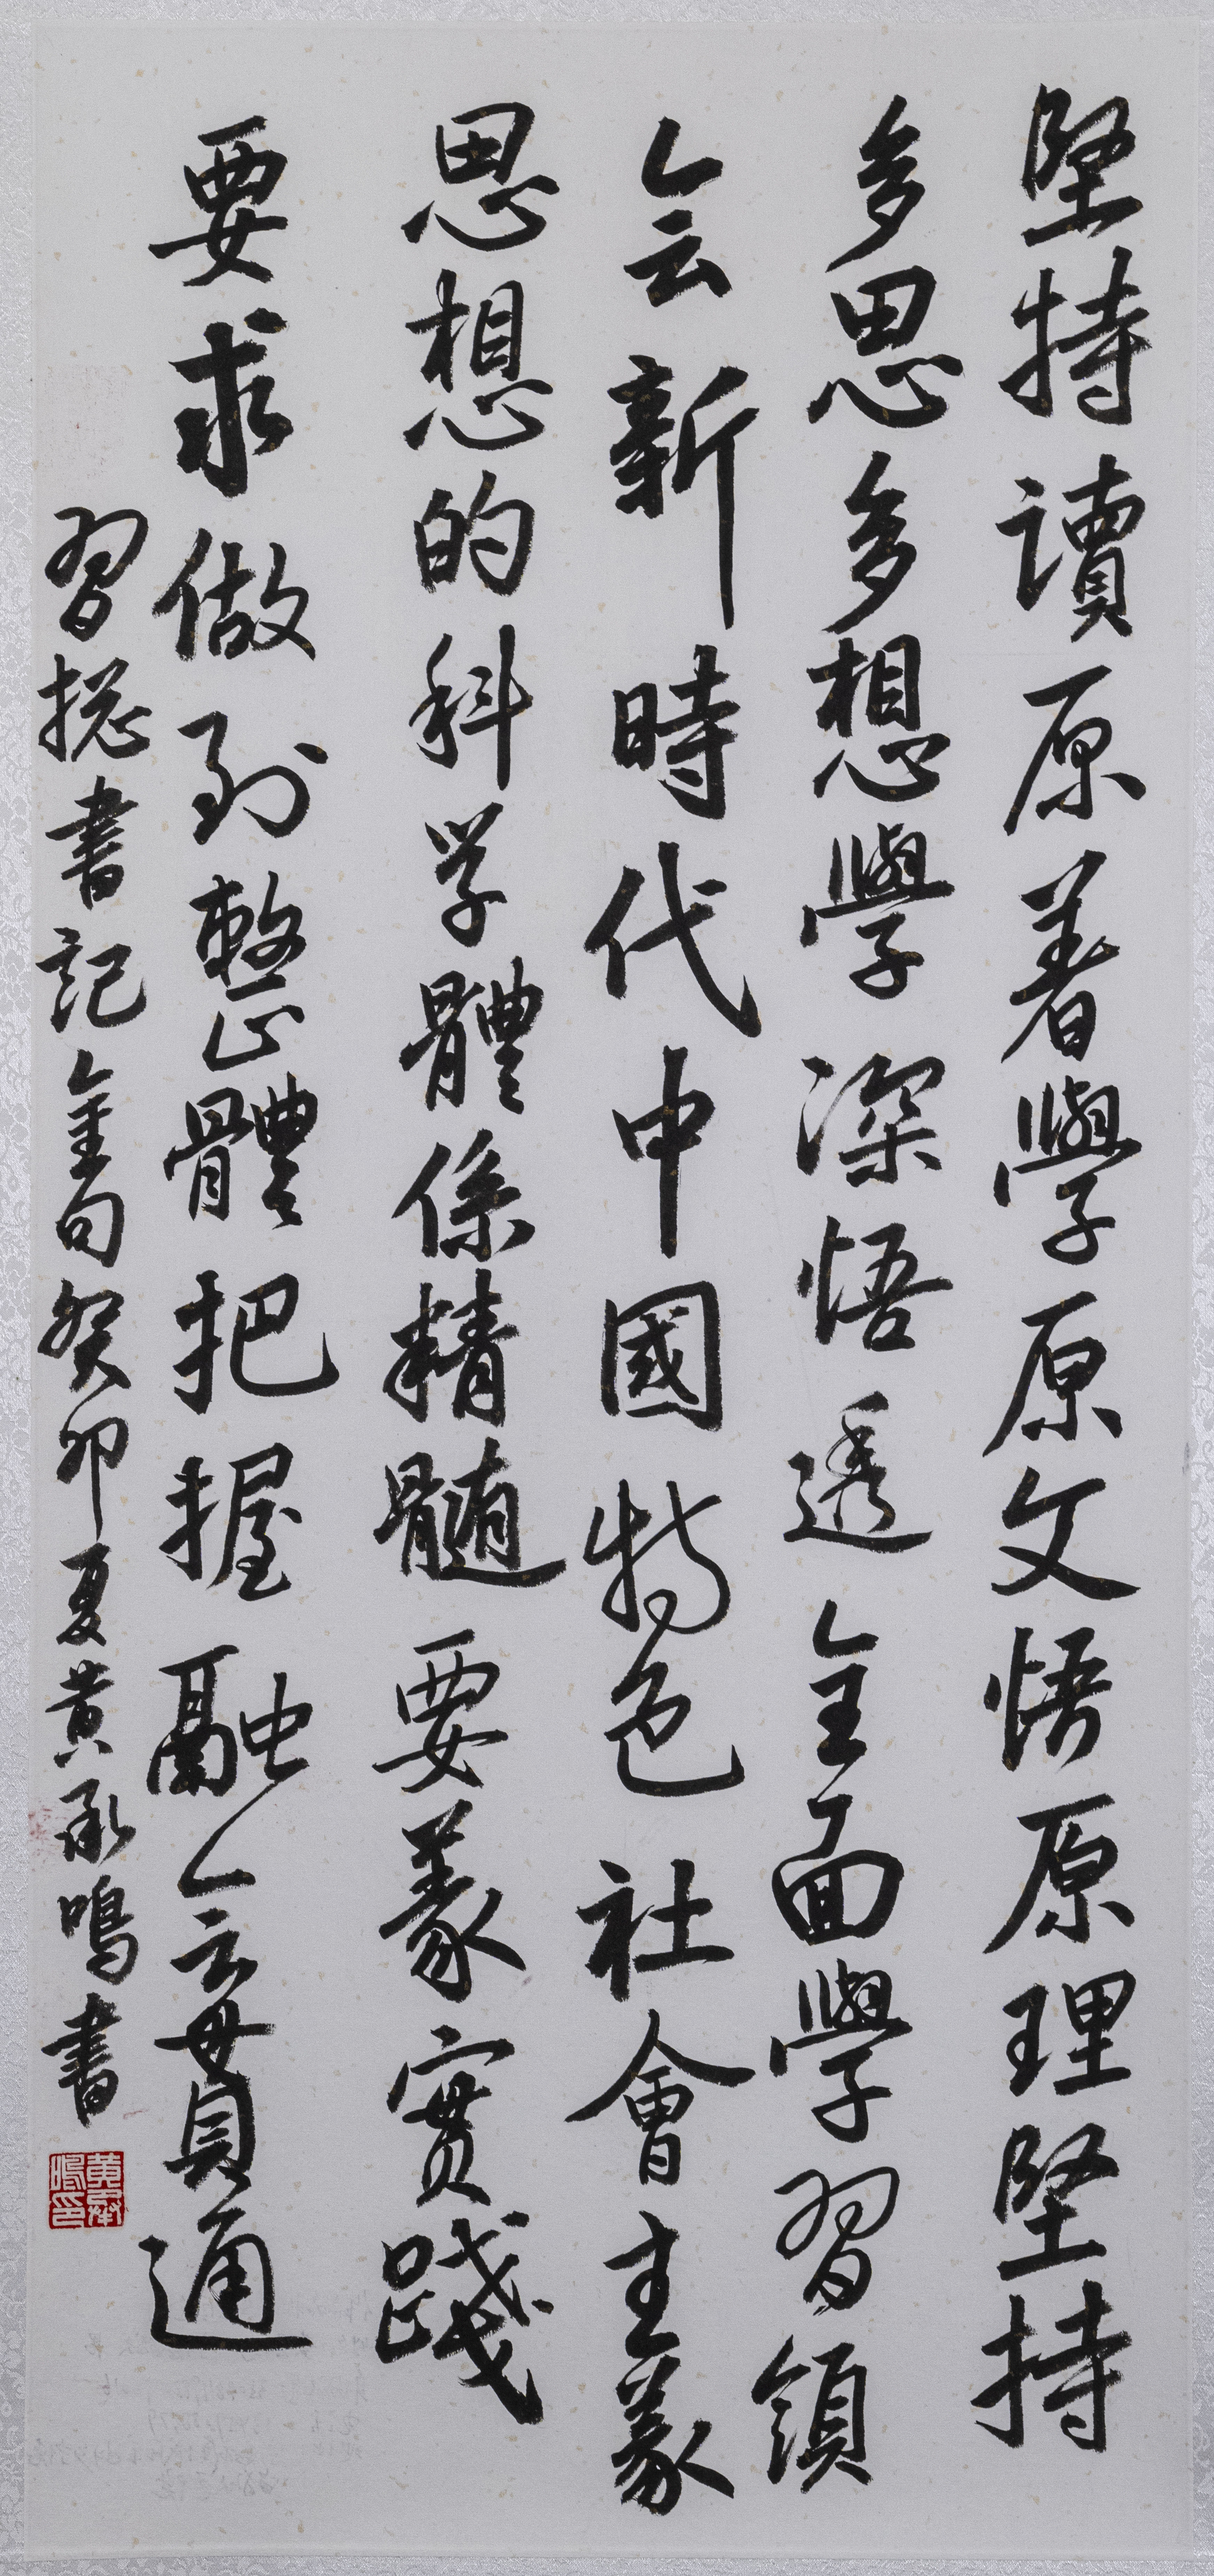 堅持讀原著學原文悟原理堅持
多思多想學深悟透全面學習領
会新時代中國特色社會主義
思想的科学體係精髓要義實踐
要求做到整體把握融会貫通
習總書記金句癸卯夏黄承鳴書
黄承鳴印